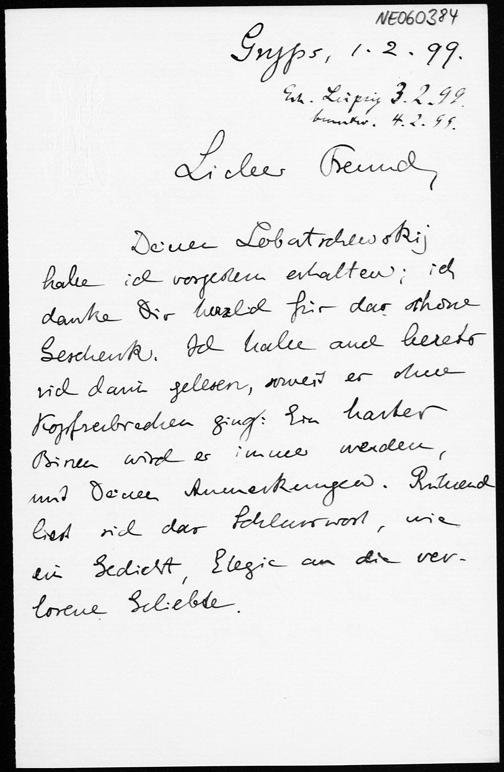 NE060384
Gryps, 1.2.99.
Erh. Leipzig 3.2.99.
beantw. 4.2.99.
Lieber Freund,
Deinen Lobatschewskij
habe ich vorgestern erhalten; ich
danke Dir herzlich für das schöne
Geschenk. Ich habe auch bereits
viel darin gelesen, soweit es ohne
Kopfzerbrechen ging: Ein harter
Bissen wird er immer werden,
mit Deinen Anmerkungen. Rührend
liest sich das Schlusswort, wie
ein Gedicht, Elegie an die ver-
lorene Geliebte.